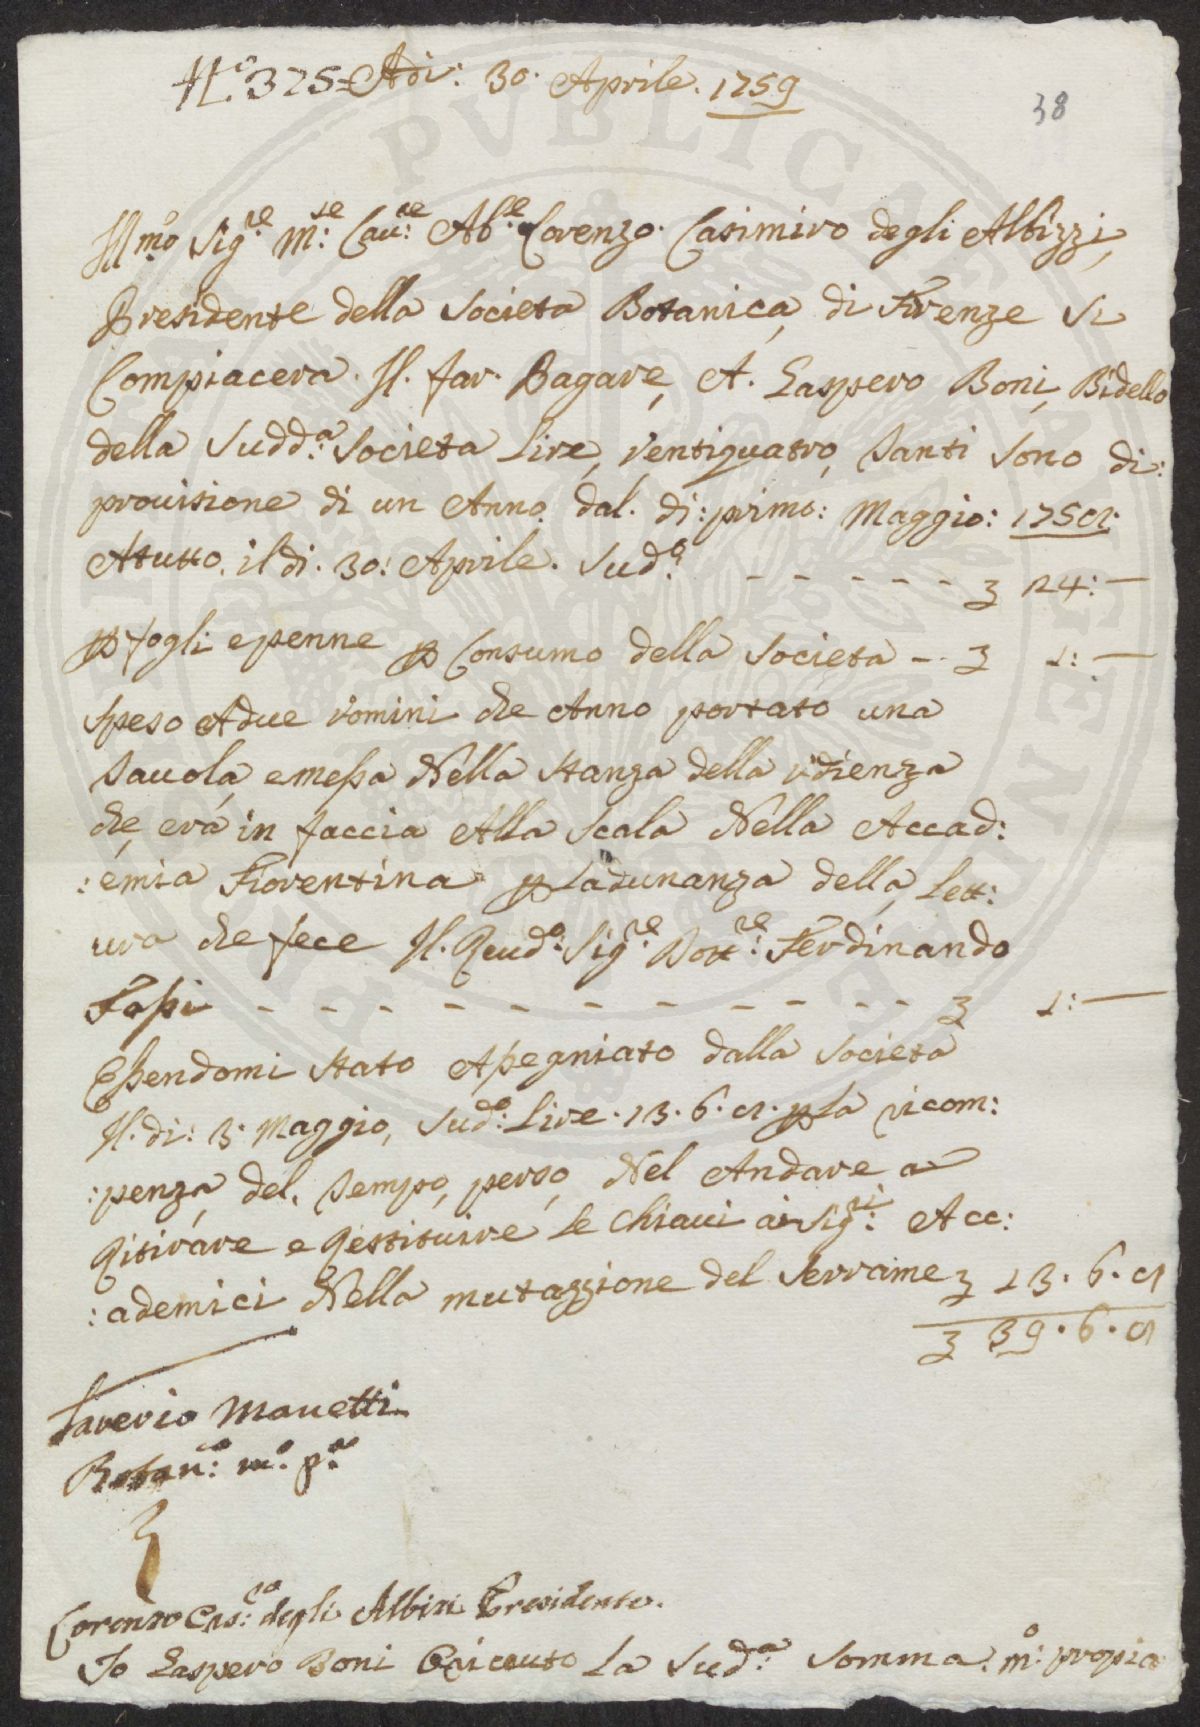 N.° 325 = Adi: 30. Aprile. 1759
38
Ill.mo Sig.re M.se Cau.re Ab.e Lorenzo Casimiro degli Albizzi,
Presidente della Societa Botanica, di Firenze si
Compiacera. Il. fav. Pagare, A. Gaspero Boni, Bidello
della Sudd.a Societa Lire, Ventiquatro, Tanti sono di:
prouisione di un Anno. dal. di: primo: Maggio: 1758.
Atutto. il di. 30: Aprile. Sud.o - - - - - - £ 24: —
P fogli e penne P Consumo della Societa - £ 1: —
Speso Adue Uomini che Anno portato una
Tauola, e messa Nella Stanza della Udienza
che, era in faccia Alla Scala Nella Accad:
:emia Fiorentina P Ladunanza della, Lett:
ura che fece Il. Reud.o Sig.re Dott.re Ferdinando
Fossi - - - - - - - - - - - - £ 1: —
Essendomi Stato Assegniato dalla Societa
Il. di: 3. Maggio, Sud.o Lire. 13. 6. 8. P La ricom:
:penza, del. Tempo, perso, Nel Andare a
Ritirare e Restituire Le Chiaui ai Sig.ri Acc:
:ademici Nella mutazzione del Serrame £ 13. 6. 8
£ 39. 6. 8
Saverio Manetti
Botan.co m.o p.a
Lorenzo Cas.ro degli Albizi Presidente.
Io Gaspero Boni O riceuto La Sud.a Somma. m.o propia